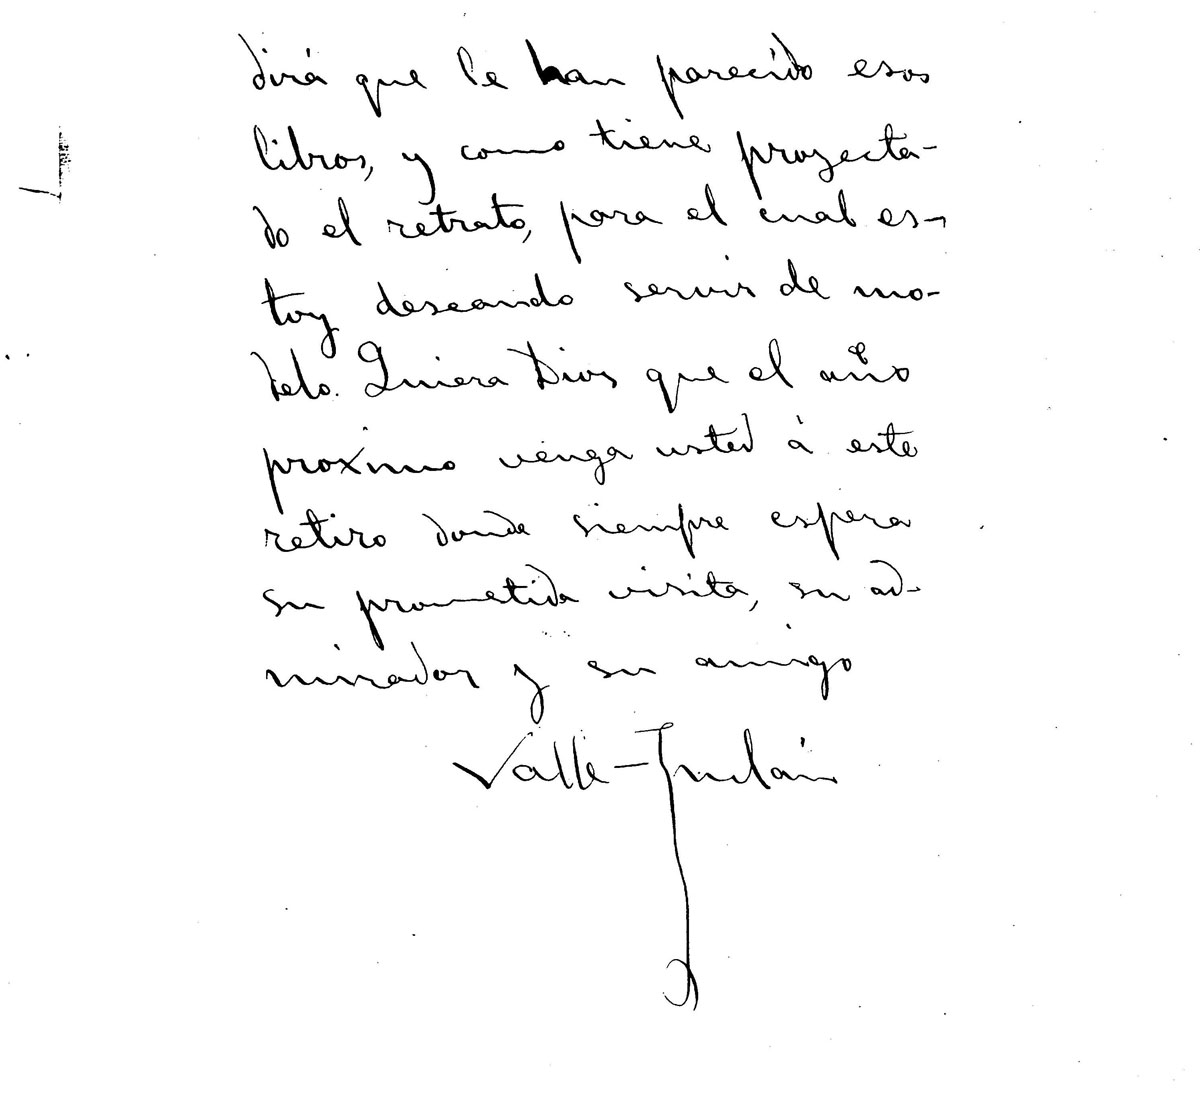 dirá que le han parecido esos
libros, y como tiene proyecta-
do el retrato, para el cual es-
toy deseando servir de mo-
delo. Quiera Dios que el año
próximo venga usted á este
retiro donde siempre espera
su prometida visita, su ad-
mirador y su amigo
Valle-Inclán